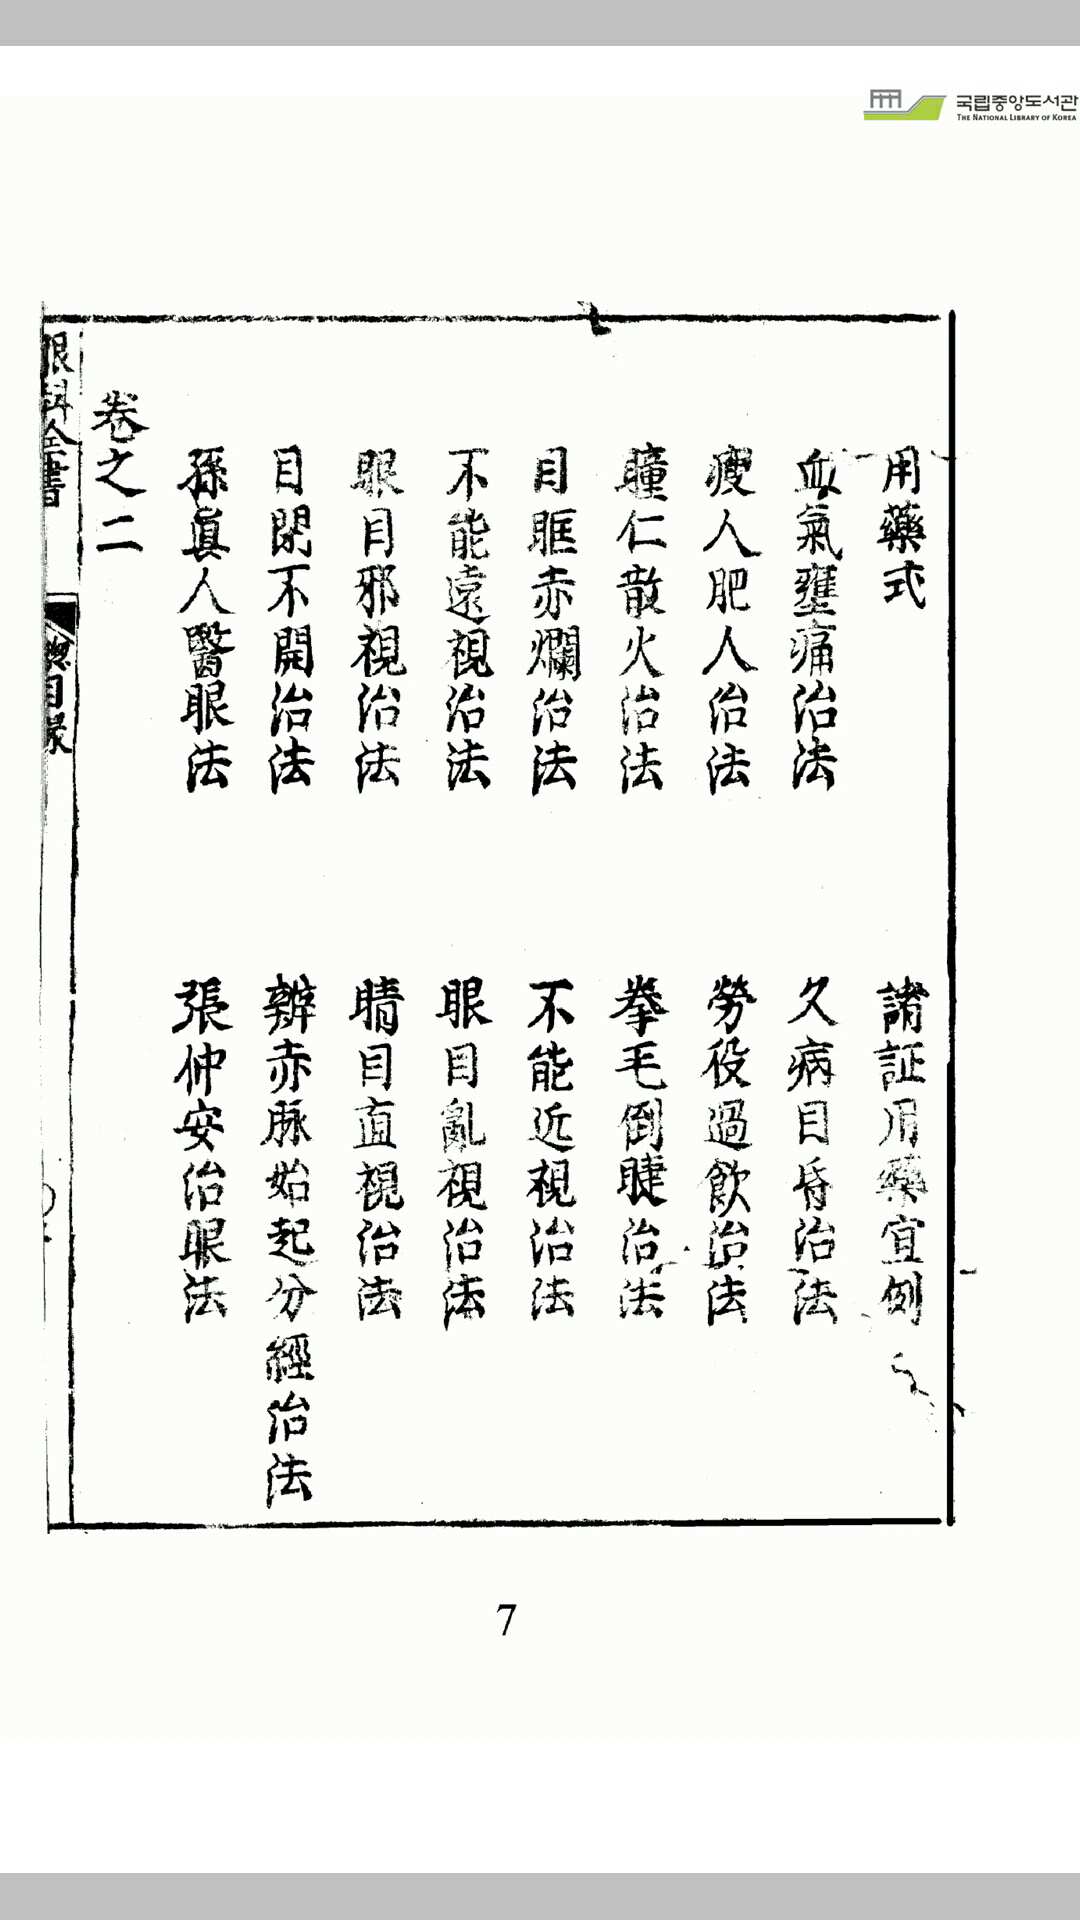 국립중앙도서관
THE NATIONAL LIBRARY OF KOREA
用藥式
諸証用藥宜例
血氣壅痛治法
久病目昏治法
瘦人肥人治法
勞役過飲治法
瞳仁散火治法
拳毛倒睫治法
目眶赤爛治法
不能近視治法
不能遠視治法
眼目亂視治法
眼目邪視治法
睛目直視治法
目閉不開治法
辨赤脉始起分經治法
孫眞人醫眼法
張仲安治眼法
卷之二
眼科全書
總目录
7